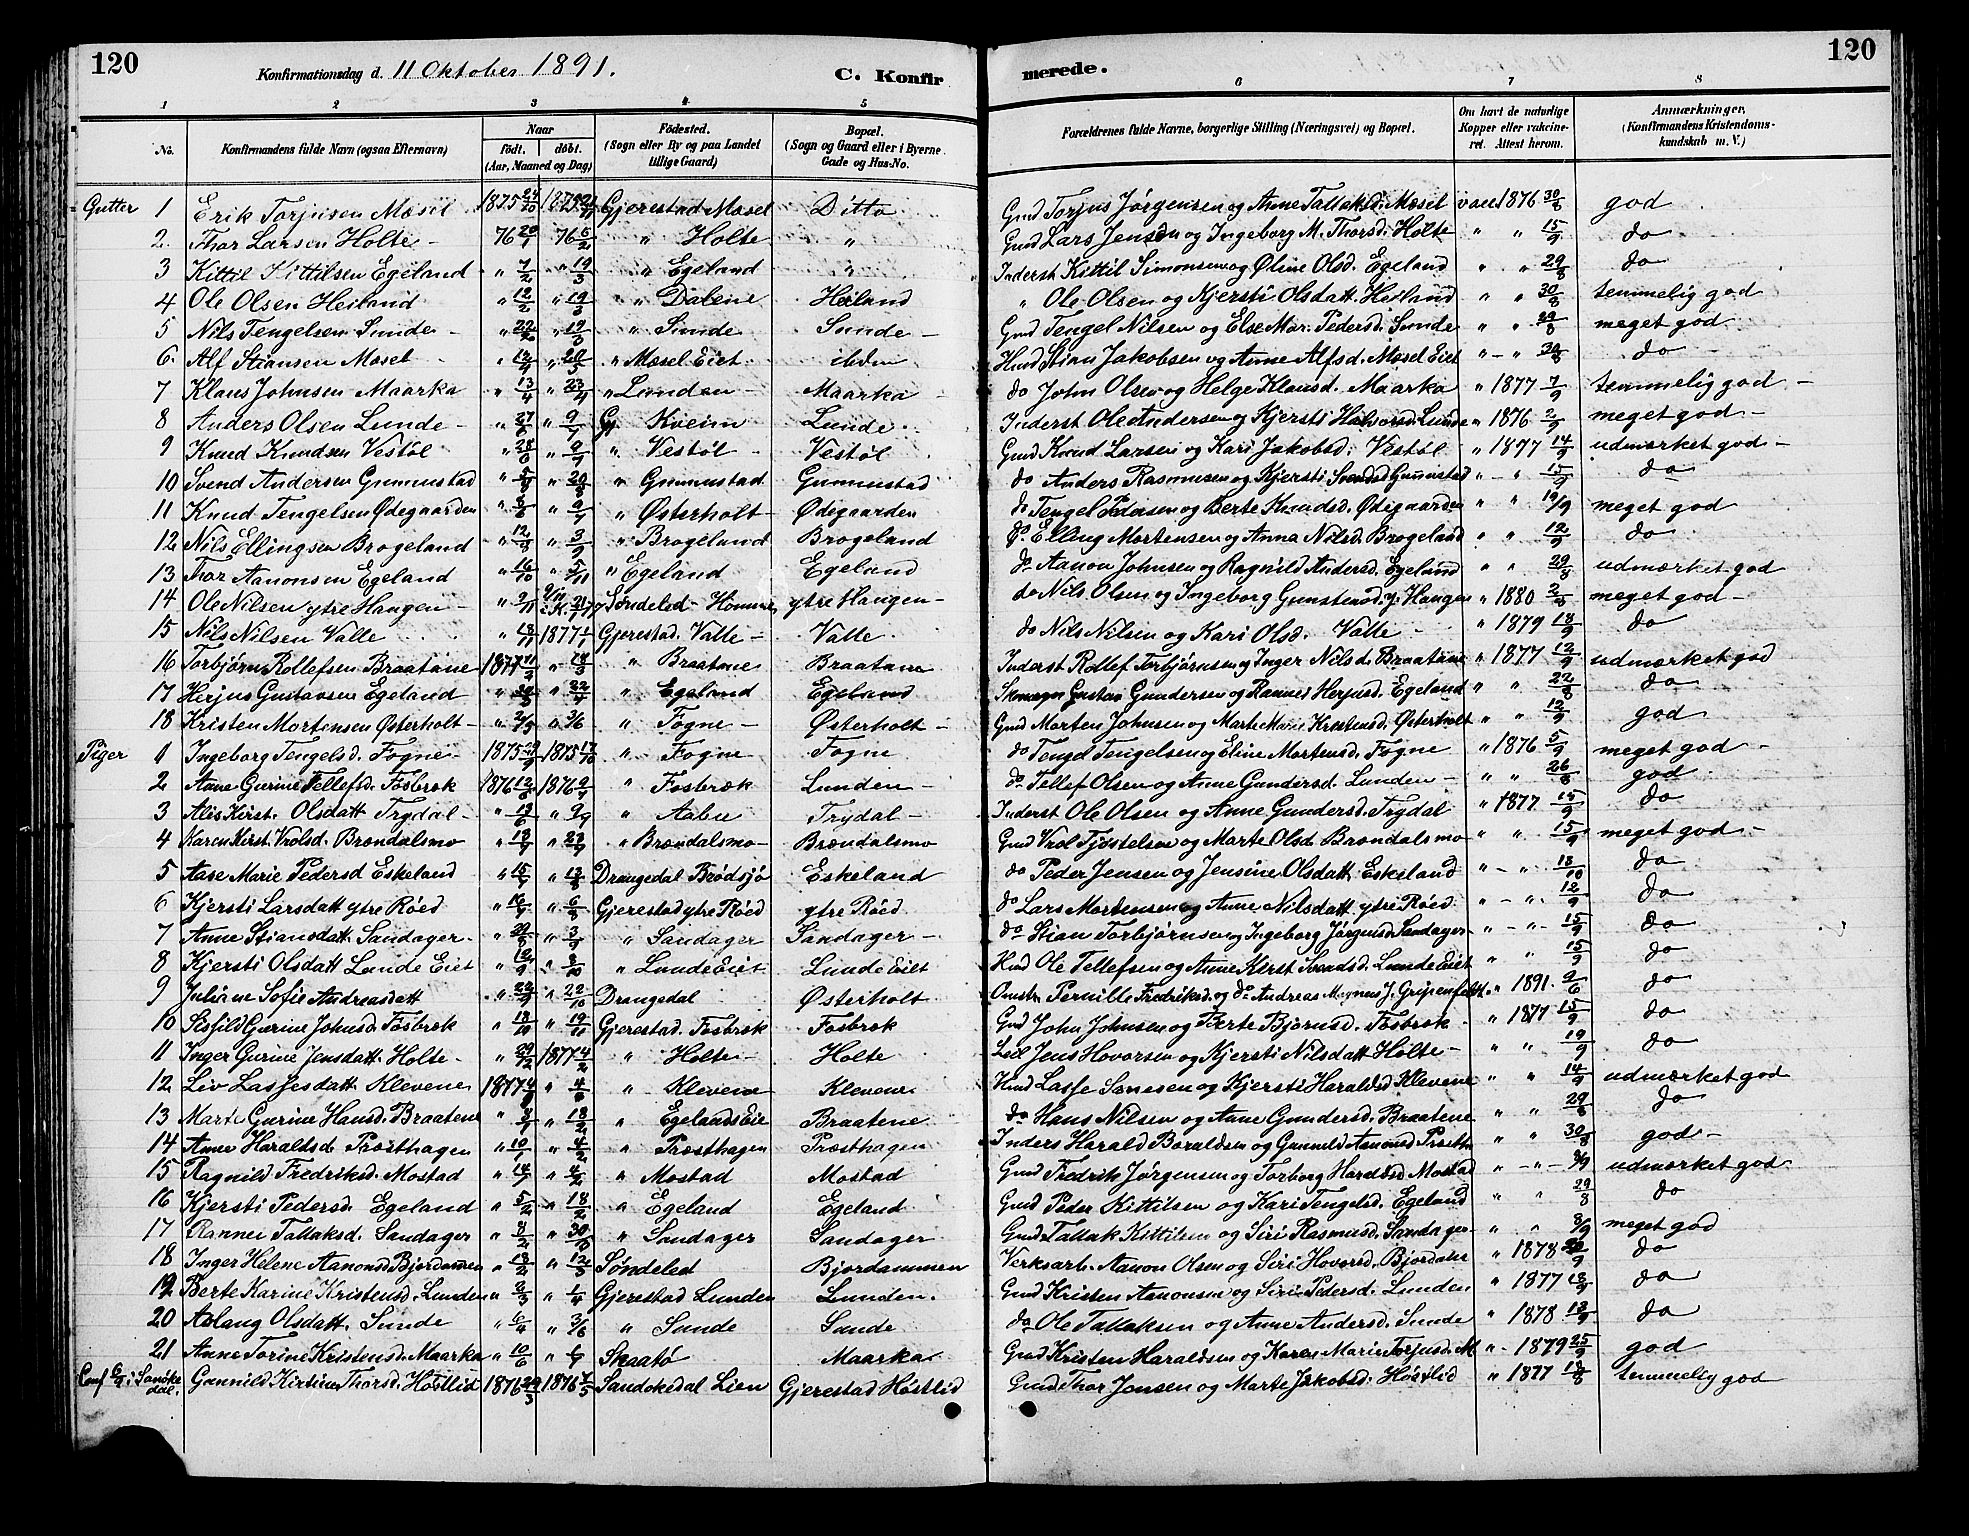 120
Konfirmationsdag d. 11 Oktober 1891.
C. Konfirmerede.
120
1 2 3 4 5 6 7 8
No. Konfirmandens fulde Navn (ogsaa Efternavn) Naar födt. döbt. (Aar, Maaned og Dag) Födested. (Sogn eller By og paa Landet tillige Gaard) Bopæl. (Sogn og Gaard eller i Byerne Gade og Hus-No. Forældrenes fulde Navne, borgerlige Stilling (Næringsvei) og Bopæl. Om havt de naturlige Kopper eller vakcineret. Attest herom. Anmærkninger, (Konfirmandens Kristendomskundskab m. V.)
Gutter 1 Erik Torjusen Mæsel 1875 24/10 1875 Gjerestad Mæsel Ditto Gmd Torjus Jørgensen og Anne Tallaksd. Mæsel vacc 1876 30/8 god
2 Thor Larsen Holte 76 20/1 76 Holte " Gmd Lars Jensen og Ingeborg M. Thorsd. Holte " " 15/9 do
3 Kittil Kittilsen Egeland " 7/2 " 19/3 " Egeland " Inderst Kittil Simonsen og Øline Olsd. Egeland " " 29/8 do
4 Ole Olsen Heiland " 12/2 " 19/3 " Dalene Heiland " Ole Olsen og Kjersti Olsdatt. Heiland " " 30/8 temmelig god
5 Nils Tengelsen Sunde " " 19/3 " Sunde Sunde Gmd Tengel Nilsen og Else Mar. Pedersd. Sunde " " 29/8 meget god
6 Alf Stiansen Mæsel " " 20/5 " Mæsel Eiet ibdm Husmd Stian Jakobsen og Anne Alfsd. Mæsel Eiet " " 30/8 do
7 Klaus Johnsen Maarka " 13/4 " 23/4 " Lunden Maarka do John Olsen og Helge Klausd. Maarka " 1877 7/9 temmelig god
8 Anders Olsen Lunde " 27/6 " 9/7 Gj. Kveim Lunde Inderst Ole Andersen og Kjersti Halvorsd. Lunde " 1876 2/9 meget god
9 Knud Knudsen Vestøl " 28/6 " 9/7 " Vestøl Vestøl Gmd Knud Larsen og Kari Jakobsd. Vestøl " 1877 14/9 udmærket god
10 Svend Andersen Gunnustad " " 20/8 " Gunnustad Gunnustad do Anders Rasmusen og Kjersti Svendsd Gunnustad " " 15/9 do
11 Knud Tengelsen Ødegaarden " " " Østerholt Ødegaarden do Tengel Pedersen og Berte Knudsd. Ødegaarden " " 19/9 meget god
12 Nils Ellingsen Brogeland " 12/8 " 3/9 " Brogeland Brogeland do Elling Mortensen og Anna Nilsd. Brogeland " " 12/9 do
13 Thor Aanonsen Egeland " 16/10 " 5/11 " Egeland Egeland do Aanon Johnsen og Ragnild Andersd. Egeland " " 29/8 udmærket god
14 Ole Nilsen ytre Haugen " 2/11 Søndeled Hommen ytre Haugen do Nils Olsen og Ingeborg Gunstensd. y. Haugen " 1880 2/8 meget god
15 Nils Nilsen Valle " 18/11 1877 1/1 Gjerestad Valle Valle do Nils Nilsen og Kari Olsd. Valle " 1879 18/9 do
16 Torbjørn Rollefsen Braatane 1877 " 18/3 " Braatane Braatane Inderst Rollef Torbjørnsen og Inger Nilsd. Braatane " 1877 12/9 udmærket god
17 Herjus Gustavsen Egeland " " 22/4 " Egeland Egeland Skomager Gustav Gundersen og Rannei Herjusd. Egeland " " 22/8 do
18 Kristen Mortensen Østerholt " 2/5 " 3/6 " Fogne Østerholt Gmd Morten Johnsen og Marte Marie Kristensd. Østerholt " " 12/9 god
Piger 1 Ingeborg Tengelsd. Fogne 1875 1875 17/10 " Fogne Fogne do Tengel Tengelsen og Eline Mortensd. Fogne " 1876 5/9 meget god
2 Anne Gurine Tellefsd. Fosbræk 1876 12/6 1876 9/7 " Fosbræk Lunden do Tellef Olsen og Anne Gundersd. Lunden " " 26/8 god
3 Alis Kirst. Olsdatt Trydal " " 9/7 " Aabu Trydal Inderst Ole Olsen og Anne Gundersd. Trydal " 1877 15/9 do
4 Karen Kirst. Vrolsd. Brøndalsmo " 13/7 " 23/7 " Brøndalsmo Brøndalsmo Gmd Vrol Tjøstelsen og Marte Olsd Brøndalsmo " " 15/9 meget god
5 Aase Marie Pedersd Eskeland " 15/7 " 13/8 Drangedal Brødsjø Eskeland do Peder Jensen og Jensine Olsdatt Eskeland " " 18/10 do
6 Kjersti Larsdatt ytre Røed " 16/7 " 6/8 Gjerestad ytre Røed ytre Røed do Lars Mortensen og Anne Nilsdatt ytre Røed " " 12/9 do
7 Anne Stiansdatt Sandager " " 3/9 " Sandager Sandager do Stian Torbjørnsen og Ingeborg Jørgensd. Sandager " " 15/9 do
8 Kjersti Olsdatt Lunde Eiet " " 8/10 " Lunde Eiet Lunde Eiet Husmd Ole Tellefsen og Anne Kirst Svendsd. Lunde Eiet " " 15/9 do
9 Juliane Sofie Andreasdatt " 22/9 " 22/10 Drangedal Østerholt Pernille Fredriksd. og do Andreas Magnus J. Gripenfeldt " 1891 9/6 do
10 Sisfild Gurine Johnsd. Fosbræk " 18/10 " 19/11 Gjerestad. Fosbræk Fosbræk Gmd John Johnsen og Berte Bjørnsd. Fosbræk " 1877 15/9 do
11 Inger Gurine Jensdatt. Holte " 29/12 1877 4/2 " Holte Holte Jens Hovorsen og Kjersti Nilsdatt Holte " " 19/9 do
12 Liv Lassesdatt Klevene 1877 " " Klevene Klevene Husmd Lasse Sanesen og Kjersti Haraldsd Klevene " " 14/9 udmærket god
13 Marte Gurine Hansd. Braatene " " 18/2 " Egelands Eie Braatene do Hans Nilsen og Anne Gundersd. Braatene " " 29/8 do
14 Anne Haraldsd Præsthagen " 10/1 " 4/2 " Præsthagen Præsthagen Inders Harald Baraldsen og Gunnild Aanonsd Præsth. " " 30/8 god
15 Ragnild Fredriksd. Mostad " 14/1 " 4/2 " Mostad Mostad Gmd Fredrik Jørgensen og Torborg Haraldsd Mostad " " 8/9 udmærket god
16 Kjersti Pedersd. Egeland " 5/2 " 18/2 " Egeland Egeland Gmd Peder Kittilsen og Kari Tengelsd. Egeland " " 29/8 do
17 Rannei Tallaksd. Sandager " 8/2 " 30/3 " Sandager Sandager Gmd Tallak Kittilsen og Siri Rasmusd. Sandager " " 8/9 meget god
18 Inger Helene Aanonsd Bjordammen " 13/2 " 12/3 Søndeled Bjordammen Verksarb. Aanon Olsen og Siri Hovorsd. Bjordamm " 1878 do
19 Berte Karine Kristensd. Lunden " 2/3 " 1/4 Gjerestad Lunden Lunden Gmd Kristen Aanonsen og Siri Pedersd. Lunden " 1877 13/9 do
20 Aslaug Olsdatt. Sunde " 6/4 " 3/6 " Sunde Sunde do Ole Tallaksen og Anne Andersd. Sunde " 1878 13/9 do
21 Anne Torine Kristensd. Maarka " 10/6 " Skaatø Maarka Gmd Kristen Haraldsen og Karen Marie Torjusd. M " 1879 25/9 god
Conf i Sandøkedal. Gunnild Kirstine Thorsd. Høstlid 1876 29/3 1876 Sandøkedal Lien Gjerestad Høstlid Gmd Thor Jensen og Marte Jakobsd. Høstlid " 1877 18/8 temmelig god